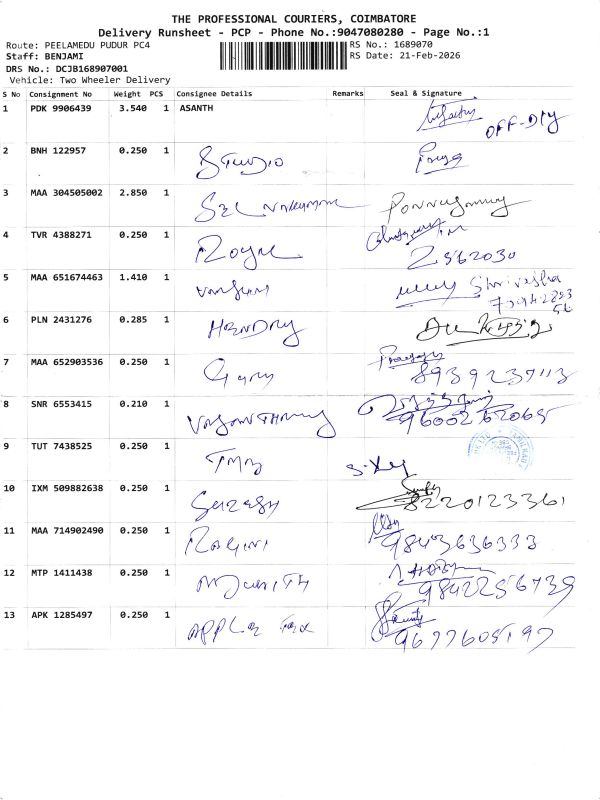 THE PROFESSIONAL COURIERS, COIMBATORE
Delivery Runsheet - PCP - Phone No.:9047080280 - Page No.:1
Route: PEELAMEDU PUDUR PC4 RS No.: 1689070
Staff: BENJAMI RS Date: 21-Feb-2026
DRS No.: DCJB168907001
Vehicle: Two Wheeler Delivery
S No Consignment No Weight PCS Consignee Details Remarks Seal & Signature
1 PDK 9906439 3.540 1 ASANTH
OFF-Dry
2 BNH 122957 0.250 1 STUDIO Priya
3 MAA 304505002 2.850 1
4 TVR 4388271 0.250 1 Royal
2562030
5 MAA 651674463 1.410 1 Shrivesha
6 PLN 2431276 0.285 1 HENDRY
7 MAA 652903536 0.250 1 Gary
8 SNR 6553415 0.210 1
9600262065
9 TUT 7438525 0.250 1
10 IXM 509882638 0.250 1 SURESH
8220123361
11 MAA 714902490 0.250 1 RAGINI
9843636333
12 MTP 1411438 0.250 1
9842256739
13 APK 1285497 0.250 1 APPLE
9677605197